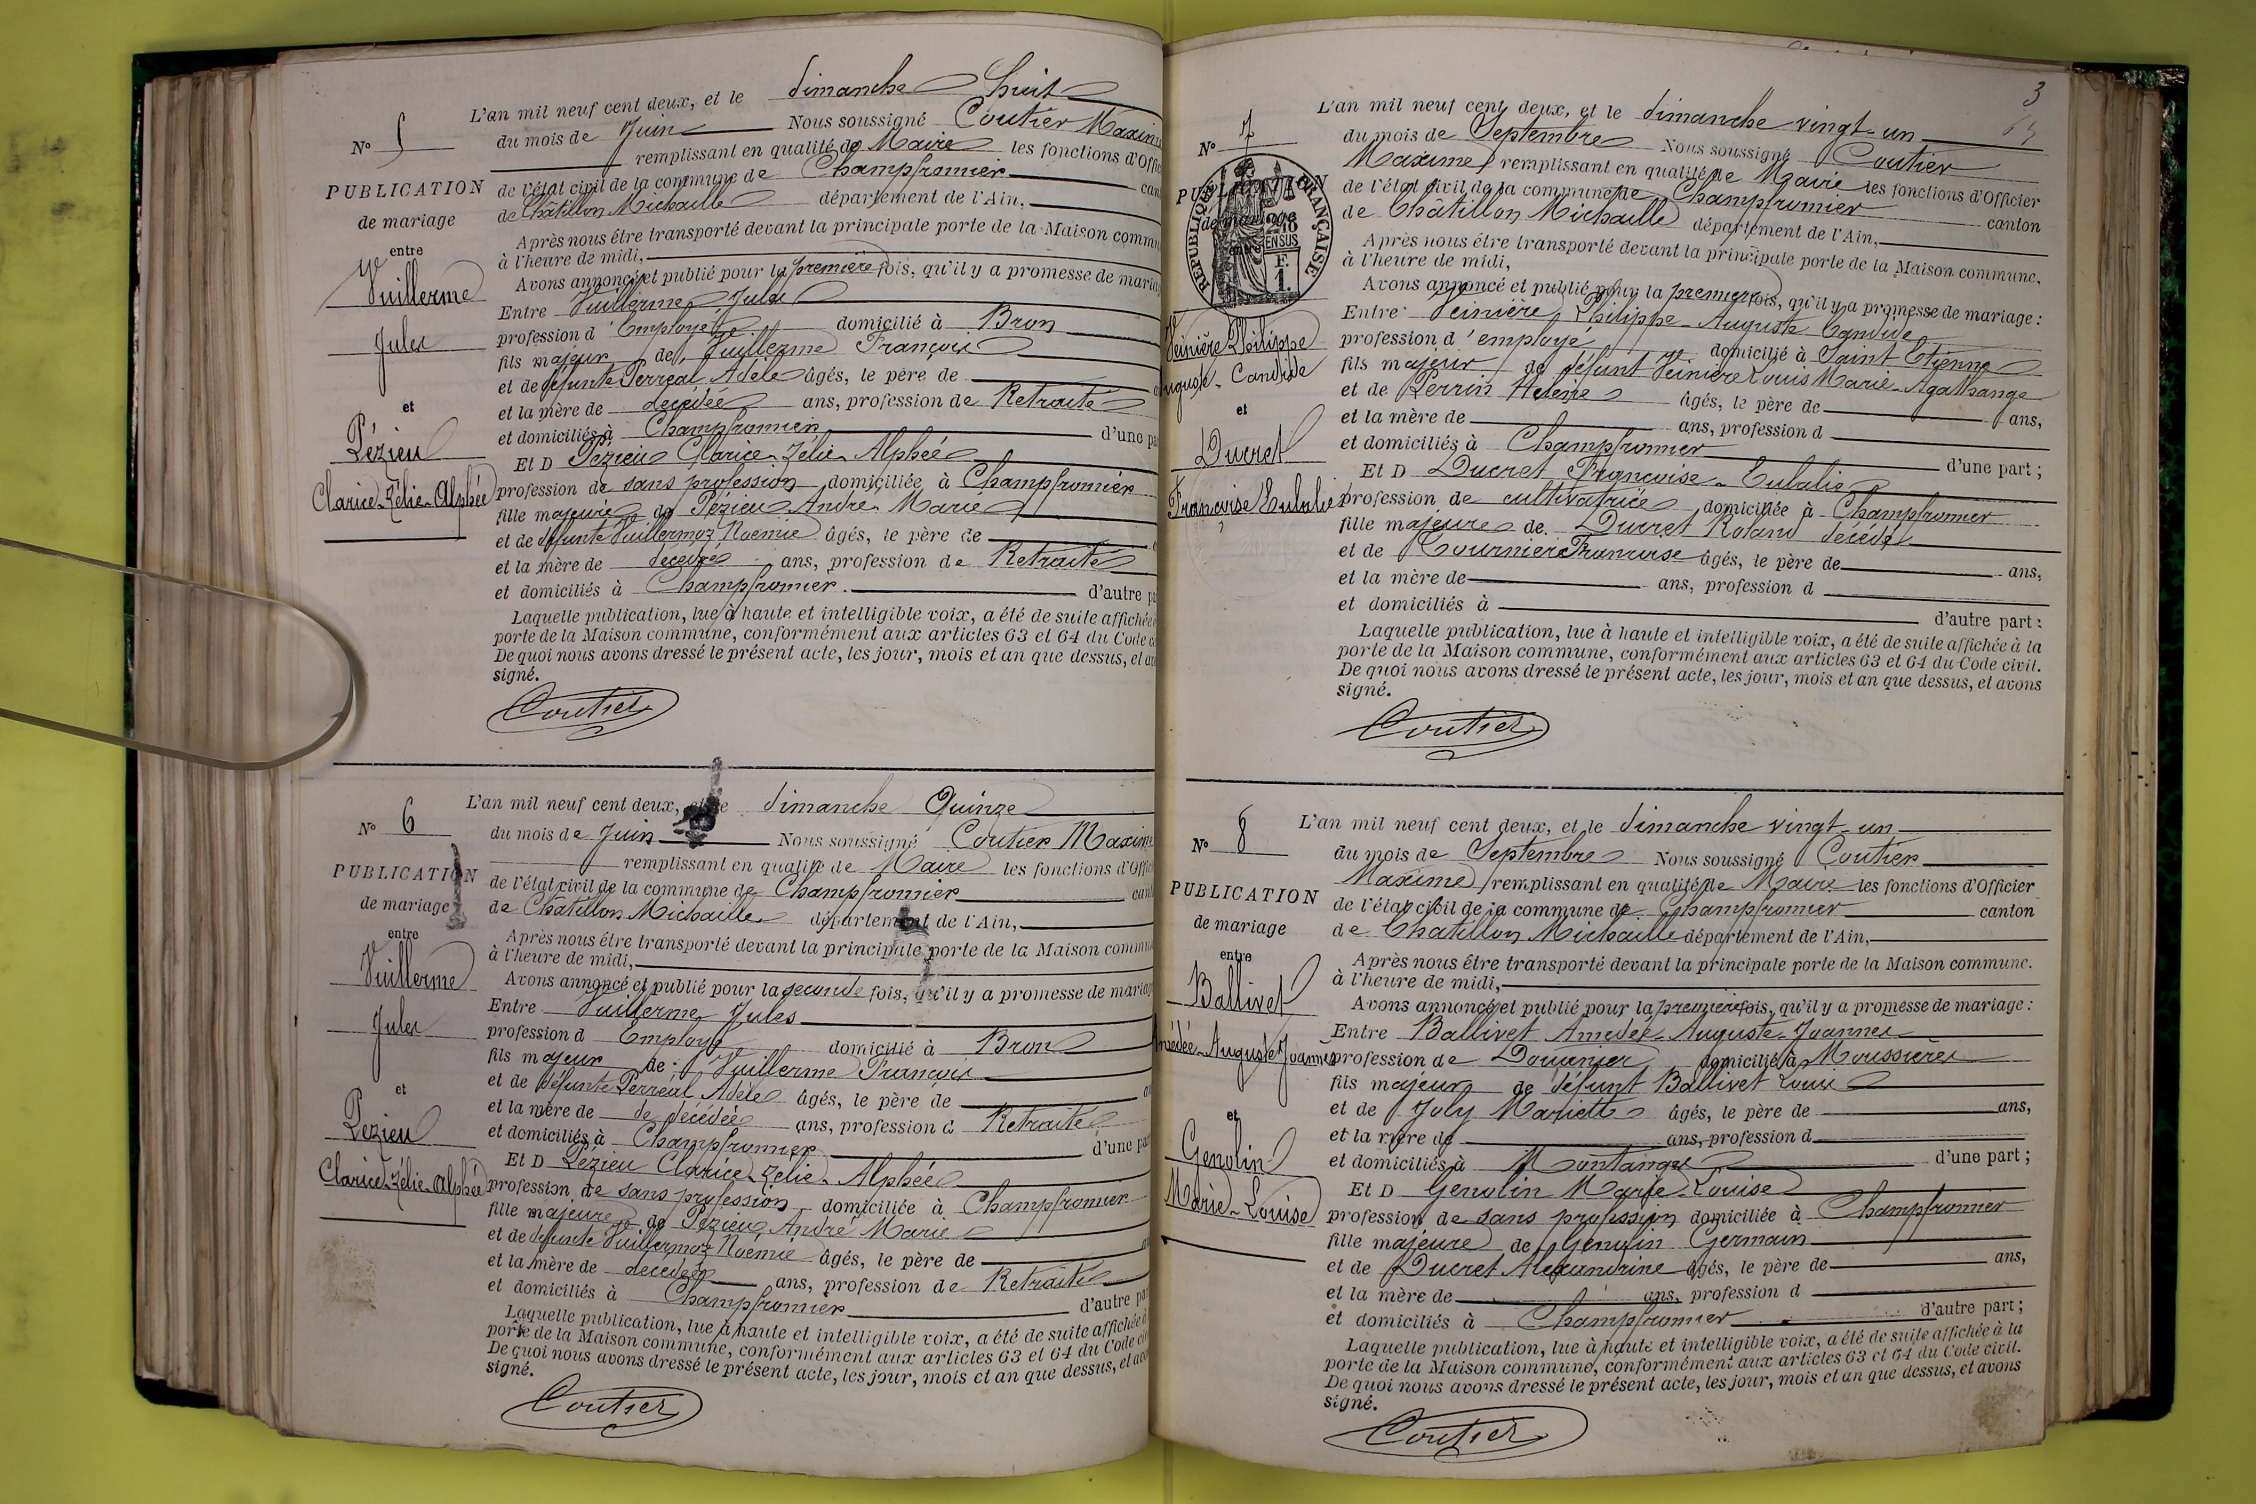 N° 5
PUBLICATION
de mariage
entre
Vuillerme
Jules
et
Pézieu
Clarice-Zélie-Alphée
L'an mil neuf cent deux, et le dimanche huit
du mois de Juin Nous soussigné Coutier Maxim
remplissant en qualité de Maire les fonctions d'Offic
de l'état civil de la commune de Champfromier can
de Châtillon Michaille département de l'Ain,
Après nous être transporté devant la principale porte de la Maison commu
à l'heure de midi,
Avons annoncé et publié pour la première fois, qu'il y a promesse de maria
Entre Vuillerme Jules
profession d'Employé domicilié à Bron
fils majeur de Vuillerme François
et de défunte Perréal Adèle âgés, le père de a
et la mère de décédée ans, profession de Retraité
et domiciliés à Champfromier d'une pa
Et D Pézieu Clarice-Zélie-Alphée
profession de sans profession domiciliée à Champfromier
fille majeure de Pézieu André Marie
et de défunte Vuillermoz Noémie âgés, le père de
et la mère de décédée ans, profession de Retraité
et domiciliés à Champfromier. d'autre pa
Laquelle publication, lue à haute et intelligible voix, a été de suite affichée
porte de la Maison commune, conformément aux articles 63 et 64 du Code c
De quoi nous avons dressé le présent acte, les jour, mois et an que dessus, et av
signé.
Coutier
N° 6
PUBLICATION
de mariage
entre
Vuillerme
Jules
et
Pézieu
Clarice-Zélie-Alphée
L'an mil neuf cent deux, et le dimanche Quinze
du mois de Juin Nous soussigné Coutier Maxime
remplissant en qualité de Maire les fonctions d'Offic
de l'état civil de la commune de Champfromier cant
de Châtillon Michaille département de l'Ain,
Après nous être transporté devant la principale porte de la Maison commu
à l'heure de midi,
Avons annoncé et publié pour la seconde fois, qu'il y a promesse de maria
Entre Vuillerme Jules
profession d Employé domicilié à Bron
fils majeur de Vuillerme François
et de défunte Perréal Adèle âgés, le père de a
et la mère de de décédée ans, profession d Retraité
et domiciliés à Champfromier d'une pa
Et D Pézieu Clarice-Zélie-Alphée
profession de sans profession domiciliée à Champfromier
fille majeure de Pézieu André Marie
et de défunte Vuillermoz Noémie âgés, le père de an
et la mère de décédée ans, profession de Retraité
et domiciliés à Champfromier d'autre pa
Laquelle publication, lue à haute et intelligible voix, a été de suite affichée à
porte de la Maison commune, conformément aux articles 63 et 64 du Code ci
De quoi nous avons dressé le présent acte, les jour, mois et an que dessus, et avo
signé.
Coutier
3
N° 7
PUBLICATION
de mariage
entre
RÉPUBLIQUE FRANÇAISE
2/10
EN SUS
F.
1.
Veinière Philippe
Auguste-Candide
et
Ducret
Françoise Eulalie
L'an mil neuf cent deux, et le dimanche vingt-un
du mois de Septembre Nous soussigné Coutier
Maxime remplissant en qualité de Maire les fonctions d'Officier
de l'état civil de la commune de Champfromier canton
de Châtillon Michaille département de l'Ain,
Après nous être transporté devant la principale porte de la Maison commune,
à l'heure de midi,
Avons annoncé et publié pour la première fois, qu'il y a promesse de mariage :
Entre Veinière Philippe-Auguste Candide
profession d'employé domicilié à Saint Etienne
fils majeur de défunt Veinière Louis Marie-Agathange
et de Perrin Helène âgés, le père de ans,
et la mère de ans, profession d
et domiciliés à Champfromier d'une part ;
Et D Ducret Françoise-Eulalie
profession de cultivatrice domiciliée à Champfromier
fille majeure de Ducret Roland décédé
et de Tournier Francoise âgés, le père de ans,
et la mère de ans, profession d
et domiciliés à d'autre part :
Laquelle publication, lue à haute et intelligible voix, a été de suite affichée à la
porte de la Maison commune, conformément aux articles 63 et 64 du Code civil.
De quoi nous avons dressé le présent acte, les jour, mois et an que dessus, et avons
signé.
Coutier
N° 8
PUBLICATION
de mariage
entre
Ballivet
Amédée-Auguste Joannes
et
Genolin
Marie-Louise
L'an mil neuf cent deux, et le dimanche vingt-un
du mois de Septembre Nous soussigné Coutier
Maxime remplissant en qualité de Maire les fonctions d'Officier
de l'état civil de la commune de Champfromier canton
de Châtillon Michaille département de l'Ain,
Après nous être transporté devant la principale porte de la Maison commune.
à l'heure de midi,
Avons annoncé et publié pour la première fois, qu'il y a promesse de mariage :
Entre Ballivet Amédée-Auguste-Joannes
profession de Douanier domicilié à Moussières
fils majeur de défunt Ballivet Louis
et de Joly Mariette âgés, le père de ans,
et la mère de ans, profession d
et domiciliés à Montanges d'une part ;
Et D Genolin Marie-Louise
profession de sans profession domiciliée à Champfromier
fille majeure de Genolin Germain
et de Ducret Alexandrine âgés, le père de ans,
et la mère de ans, profession d
et domiciliés à Champfromier d'autre part ;
Laquelle publication, lue à haute et intelligible voix, a été de suite affichée à la
porte de la Maison commune, conformément aux articles 63 et 64 du Code civil.
De quoi nous avons dressé le présent acte, les jour, mois et an que dessus, et avons
signé.
Coutier